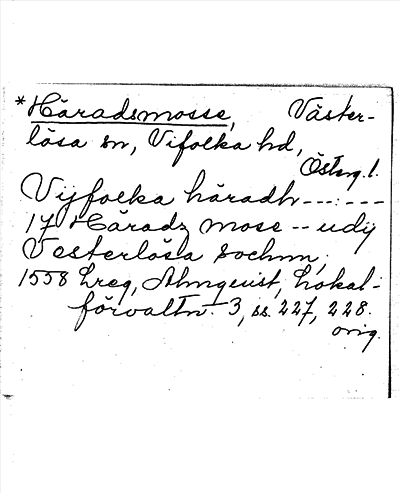 *Häradsmosse, Väster-
lösa sn, Vifolka hd,
Östergl.
Vijfolcka häradh ---:---
17 Häradz mose -- udij
Vesterlösa sochnn,
1558 Lreg, Almquist, Lokal-
förvaltn. 3, ss. 227, 228.
orig.